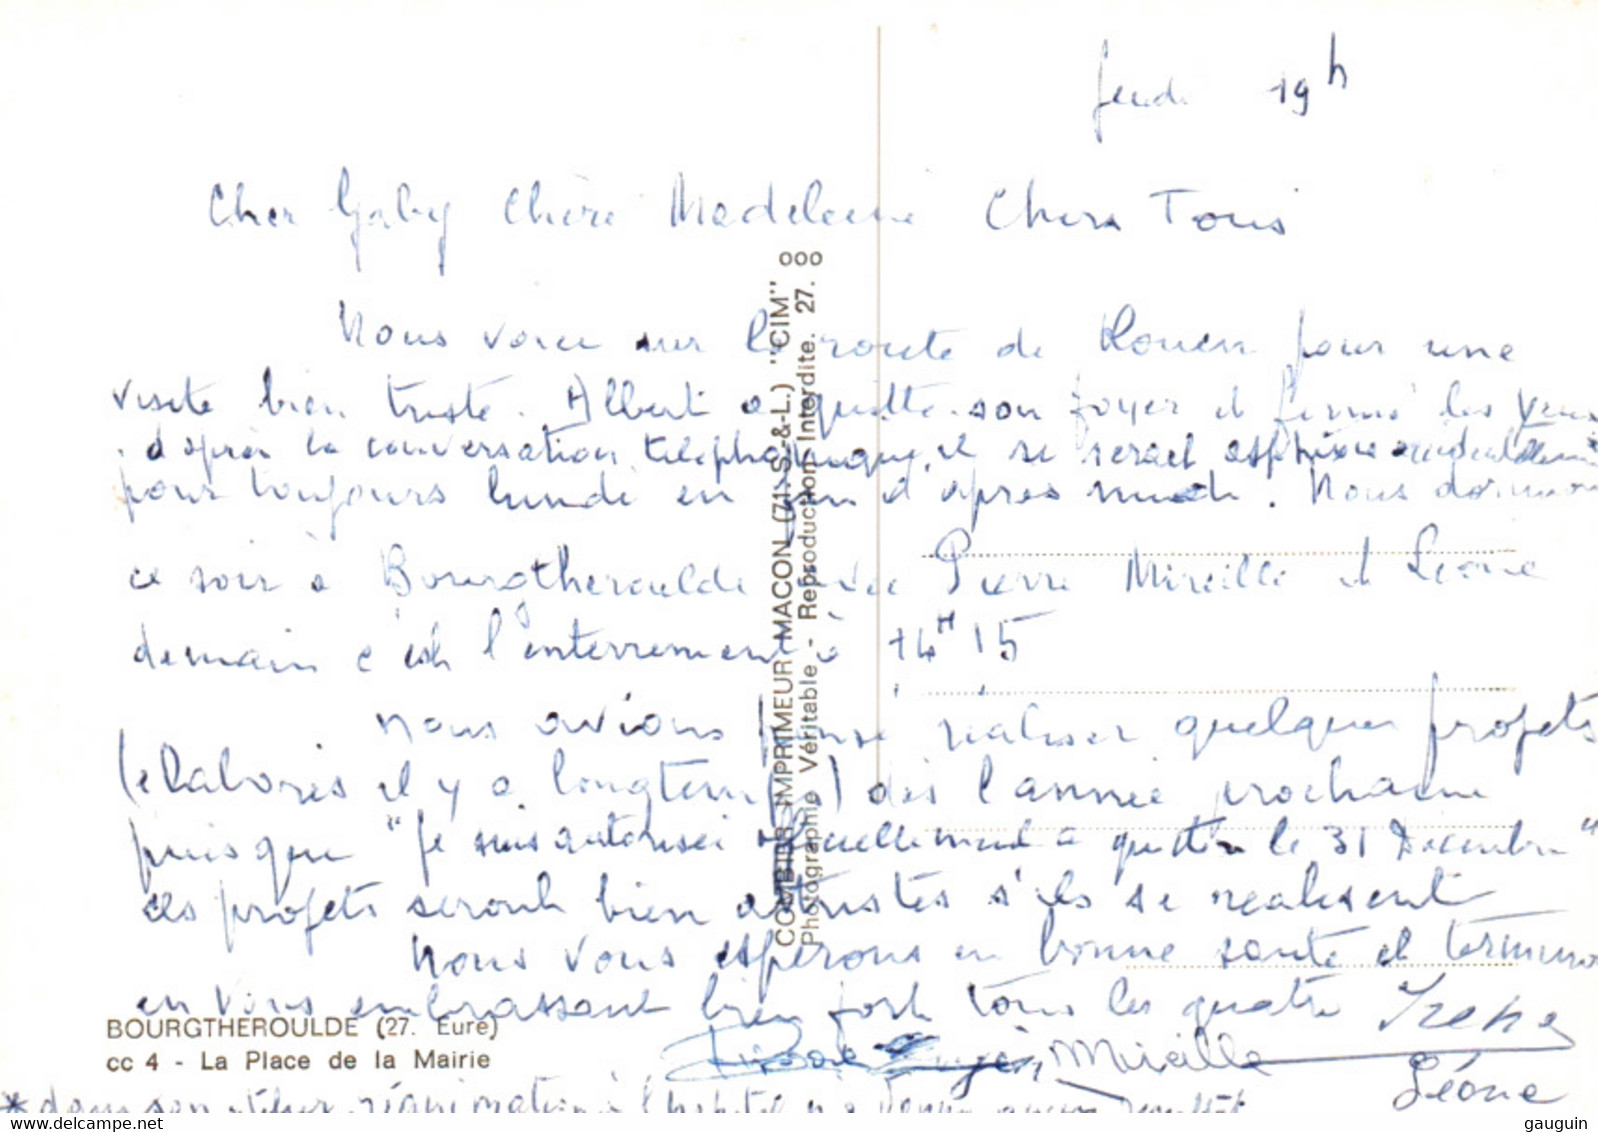 Jeudi 19h
Cher Gaby Chère Madeleine Chers Tous
Nous voici sur la route de Rouen pour une
visite bien triste. Albert a quitté son foyer et fermé les yeux
d'après la conversation téléphonique, il se serait asphixié accidentellement*
pour toujours lundi en fin d'après midi. Nous dormons
ce soir à Bourgtheroulde avec Pierre Mireille et Léone
demain c'est l'enterrement à 14H15
Nous avions pensé réaliser quelques projets
(élaborés il y a longtemps) dès l'année prochaine
puisque "je suis autorisé à quitter le 31 Décembre"
ces projets seront bien attristés s'ils se réalisent
Nous vous espérons en bonne santé et terminons
en vous embrassant bien fort tous les quatre Irène
Mireille
Léone
BOURGTHEROULDE (27. Eure)
cc 4 - La Place de la Mairie
* dans son réanimation à l'hôpital n'a aucun
COMBIER IMPRIMEUR MACON (71.S.-&-L.) "CIM"
Photographie Véritable - Reproduction Interdite. 27.
delcampe.net
gauguin